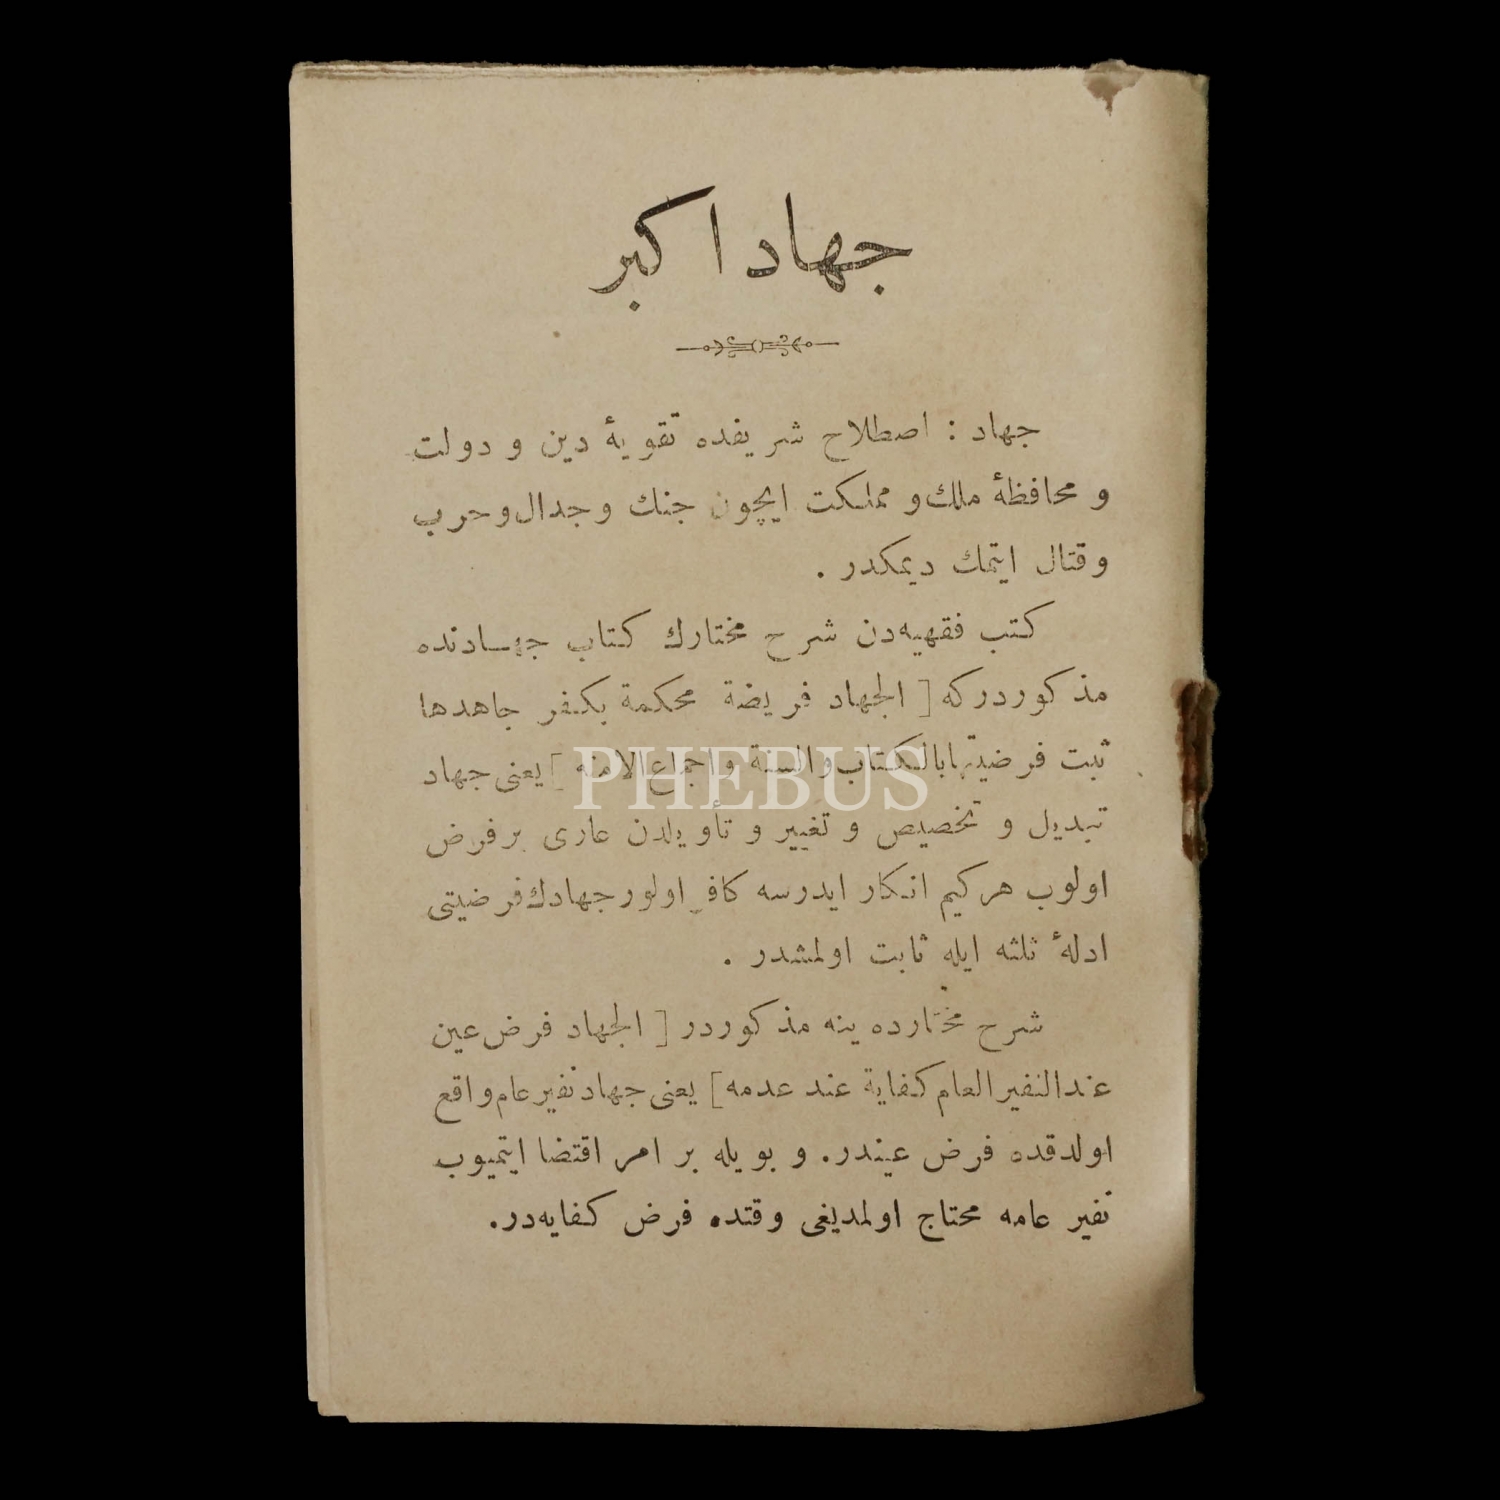 جهاد اكبر
جهاد : اصطلاح شريفده تقويهٔ دين و دولت
و محافظهٔ ملك و مملكت ايچون جنك وجدال وحرب
وقتال ايتمك ديمكدر .
كتب فقهيه‌دن شرح مختارك كتاب جهادنده
مذكوردركه [ الجهاد فريضة محكمة يكفر جاهدها
ثبت فرضيتها بالكتاب والسنة واجماع الامة ] يعنى جهاد
تبديل و تخصيص و تغيير و تأويلدن عارى بر فرض
اولوب هركيم انكار ايدرسه كافر اولور جهادك فرضيتى
ادلهٔ ثلثه ايله ثابت اولمشدر .
شرح مختارده ينه مذكوردر [ الجهاد فرض عين
عند النفير العام كفاية عند عدمه ] يعنى جهاد نفير عام واقع
اولدقده فرض عيندر. و بويله بر امر اقتضا ايتميوب
نفير عامه محتاج اولمديغى وقتده فرض كفايه‌در.
PHEBUS